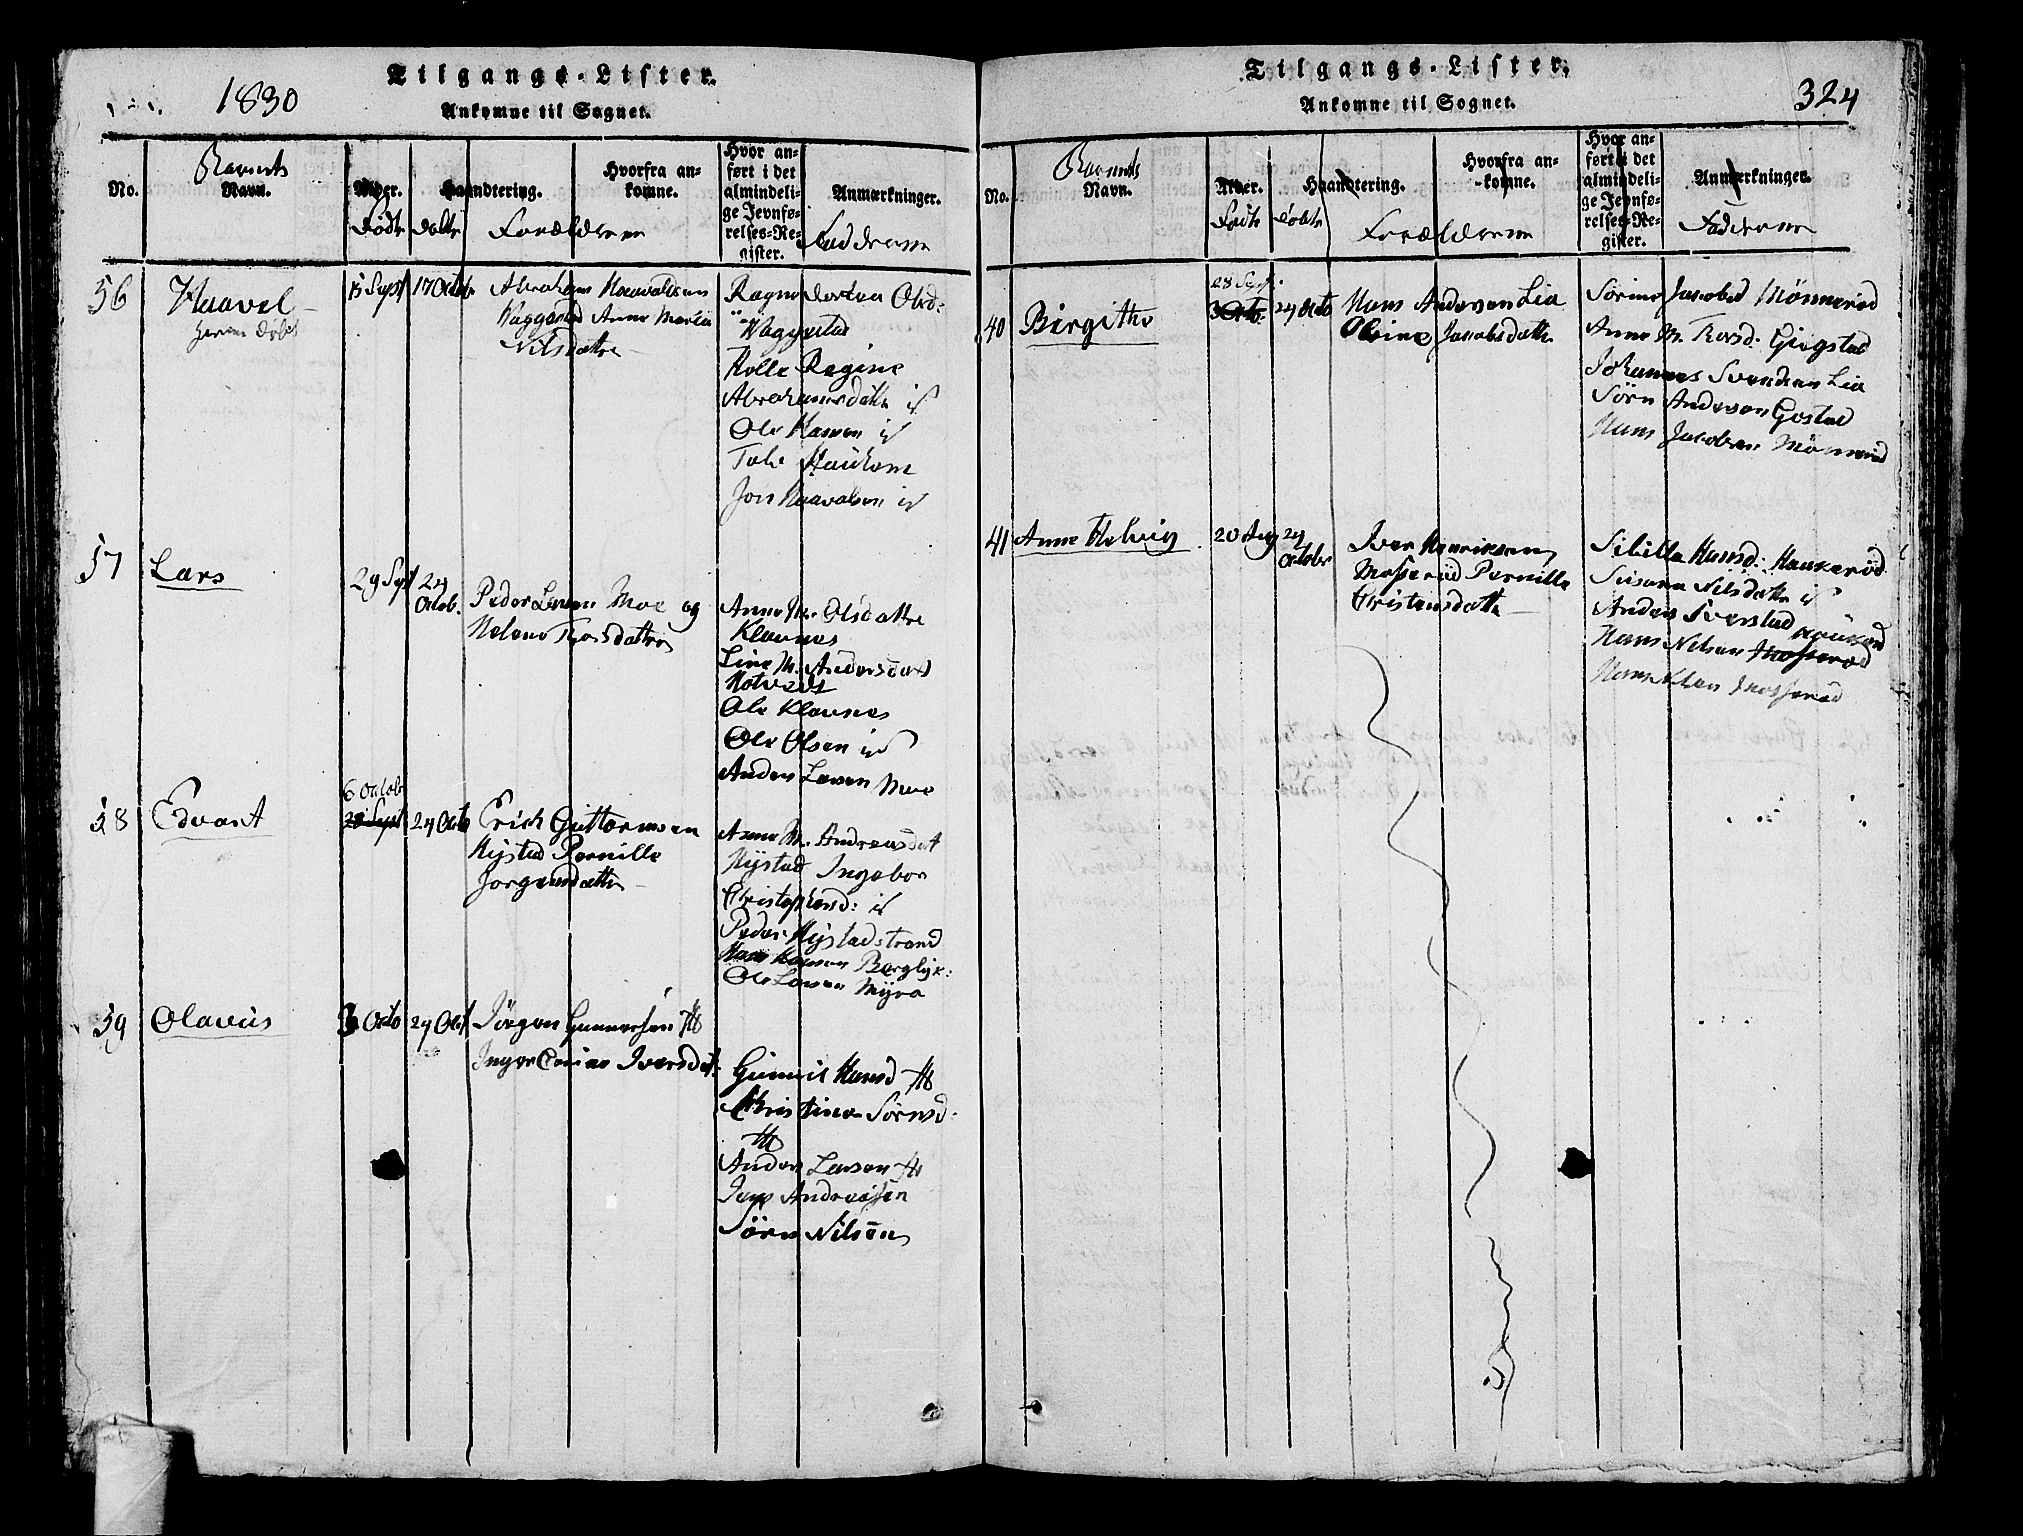 Tilgangs-Lister.
1830
Ankomne til Sognet.
No.
Barnets
Navn.
Alder.
Født
Døbt
Haandtering.
Forældrene
Hvorfra an-
komne.
Hvor an-
ført i det
almindeli-
ge Jevnfø-
relses-Re-
gister.
Anmærkninger.
Fadderne
56
Haavel
15 Sept
17 Octob
Abraham Haavalsen
Haggestad Anne Maria
Nilsdatter
Ragne Dortea Olsd:
Haggestad
Helle Regine
Abrahamsdatter id
Ole Hansen id
Tale Haukom
Jon Haavalsen id
57
Lars
29 Sept
24
Octob.
Peder Larsen Moe og
Helene Thorsdatter
Anne M. Olsdattre
Klavnes
Line M. Andersdat
Hotvedt
Ole Klavnes
Ole Olsen id
Anders Larsen Moe
58
Edvart
6 Octob
28 Sept
24 Octo
Erich Guttormsen
Nystad Pernille
Jørgensdatter
Anne M. Andreasdat
Nystad Ingebor
Christophersd: id
Peder Nystadstrand
Hans Hansen Berglyk:
Ole Larsen Myra
59
Olavus
3 Octo
24 Oct
Jørgen Gunnersen
Inger Corine Iversdat:
Gunnil Hansd
Christine Sørnsd:
Anders Larsen
Jens Andreasen
Sørn Nilsen
Tilgangs-Lister.
324
Ankomne til Sognet.
No.
Barnets
Navn.
Alder.
Født
Døbt
Haandtering.
Forældrene
Hvorfra an-
komne.
Hvor an-
ført i det
almindeli-
ge Jevnfø-
relses-Re-
gister.
Anmærkninger.
Fadderne
40
Birgithe
28 Sept.
3 Octo.
24 Octo
Hans Andersen Lia
Olvine Jacobsdatter
Sørine Jacobsd Mønnerød
Anne M. Thorsd. Giegstad
Johannes Svendsen Lia
Sørn Andersen Gostad
Hans Jacobsen Mønnerød
41
Anne Helvig
20 Aug
24
Octobr
Iver Henriksen
Mosserød Pernille
Christensdatter
Sibille Hansd: Haukerød
Susane Nilsdatter id
Anders Iverstad
Haukerød
Hans Nilsen Mosserød
Hans Olsen Mosserød